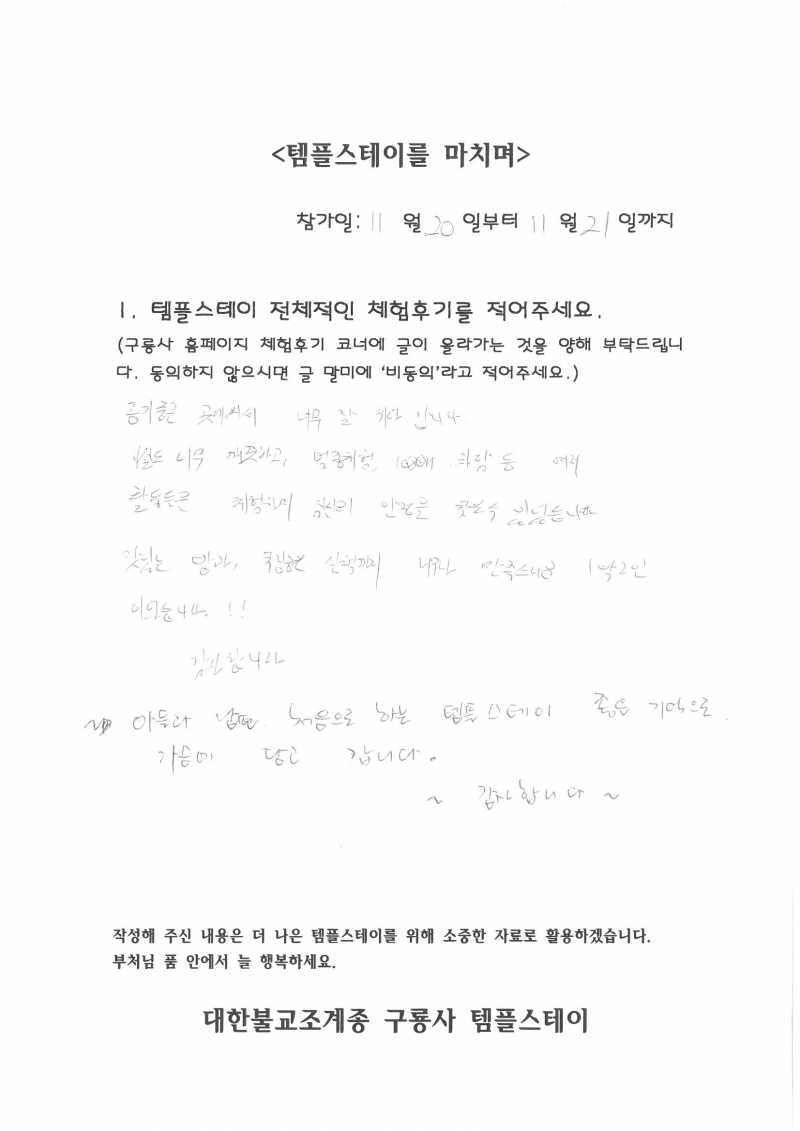 <템플스테이를 마치며>
참가일: 11 월 20 일부터 11 월 21 일까지
1. 템플스테이 전체적인 체험후기를 적어주세요.
(구룡사 홈페이지 체험후기 코너에 글이 올라가는 것을 양해 부탁드립니
다. 동의하지 않으시면 글 말미에 '비동의'라고 적어주세요.)
공기좋은 곳에서 너무 잘 쉬다 갑니다.
너무 깨끗하고, 108배 차담 등 여러
활동들은 체험하며 심신의 안정을 찾을수 있었습니다
맛있는 산책까지 너무나 만족스러운 1박2일
이었습니다. !!
감사합니다
아들과 남편. 처음으로 하는 템플스테이 좋은 기억으로
가슴에 담고 갑니다.
~ 감사합니다 ~
작성해 주신 내용은 더 나은 템플스테이를 위해 소중한 자료로 활용하겠습니다.
부처님 품 안에서 늘 행복하세요.
대한불교조계종 구룡사 템플스테이